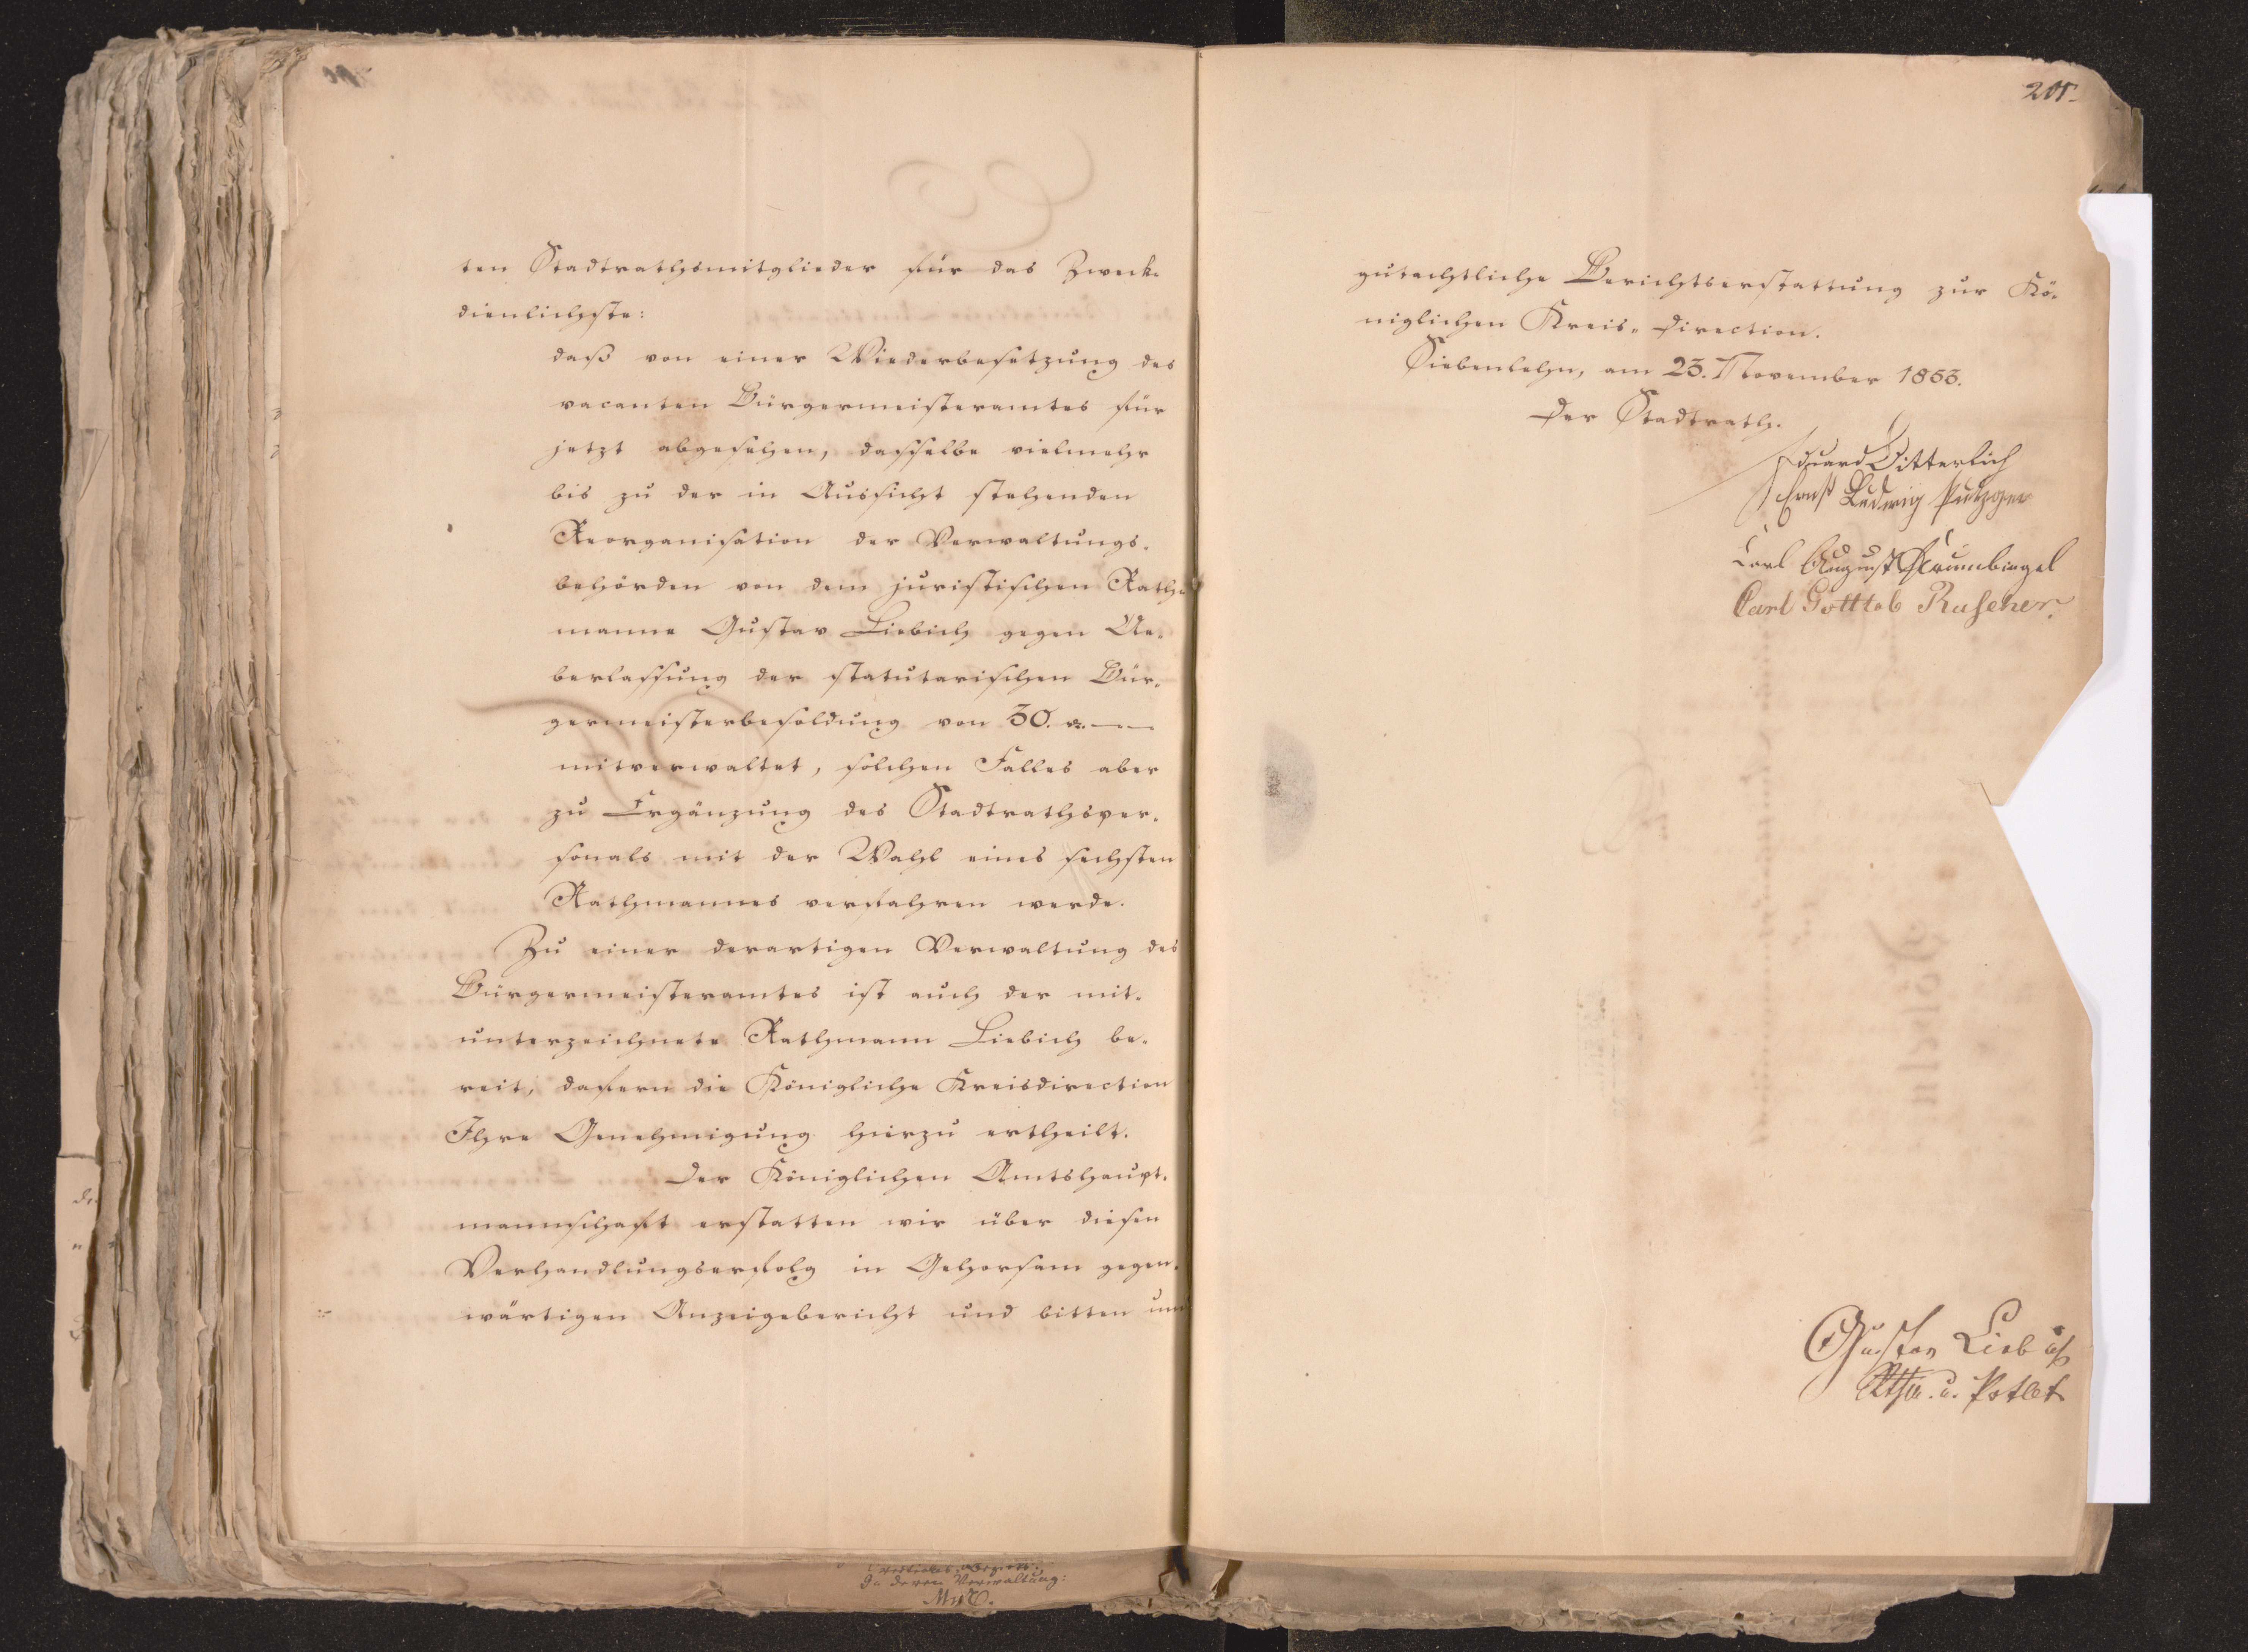 ten Stadtrathsmitglieder für das Zweck-
dienlichste:
daß von einer Wiederbesetzung des
vacanten Bürgermeisteramtes für
jetzt abgesehen, dasselbe vielmehr
bis zu der in Aussicht stehenden
Reorganisation der Verwaltungs-
behörden von dem juristischen Rath-
manne Gustav Liebich gegen Ue-
berlassung der statutarischen Bür-
germeisterbesoldung von 30.
mitverwaltet, solchen Falles aber
zu Ergänzung des Stadtrathsper-
sonals mit der Wahl eines sechsten
Rathmannes verfahren werde.
Zu einer derartigen Verwaltung des
Bürgermeisteramtes ist auch der mit-
unterzeichnete Rathmann Liebich be-
reit, dafern die Königliche Kreisdirection
Ihre Genehmigung hierzu ertheilt.
Der Königlichen Amtshaupt-
mannschaft erstatten wir über diesen
Verhandlungserfolg in Gehorsam gegen-
wärtigen Anzeigebericht und bitten um
In deren Verwaltung:
201.
gutachtliche Berichtserstattung zur Kö-
niglichen Kreis-Direction.
Siebenlehn, am 23. November 1853.
Der Stadtrath.
Eduard Ditterlich
Ernst Ludwig Putzger
Carl August
Carl Gottlob Ruscher.
Gustav Liebich